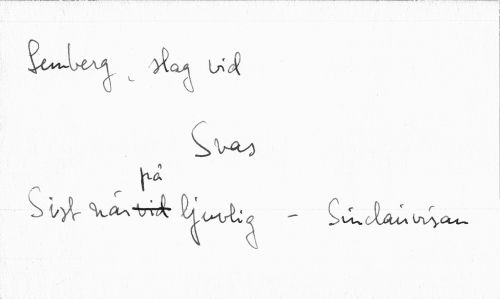 Lemberg, slag vid
Svas
på
Sist när vid ljuvlig - Sinclairvisan